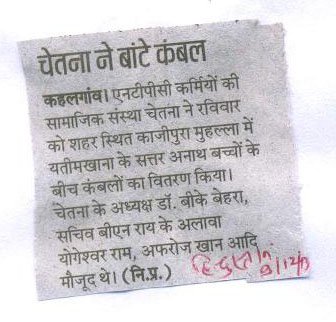 चेतना ने बांटे कंबल
कहलगांव। एनटीपीसी कर्मियों की
सामाजिक संस्था चेतना ने रविवार
को शहर स्थित काजीपुरा मुहल्ला में
यतीमखाना के सत्तर अनाथ बच्चों के
बीच कंबलों का वितरण किया।
चेतना के अध्यक्ष डॉ. बीके बेहरा,
सचिव बीएन राय के अलावा
योगेश्वर राम, अफरोज खान आदि
मौजूद थे। (नि.प्र.)